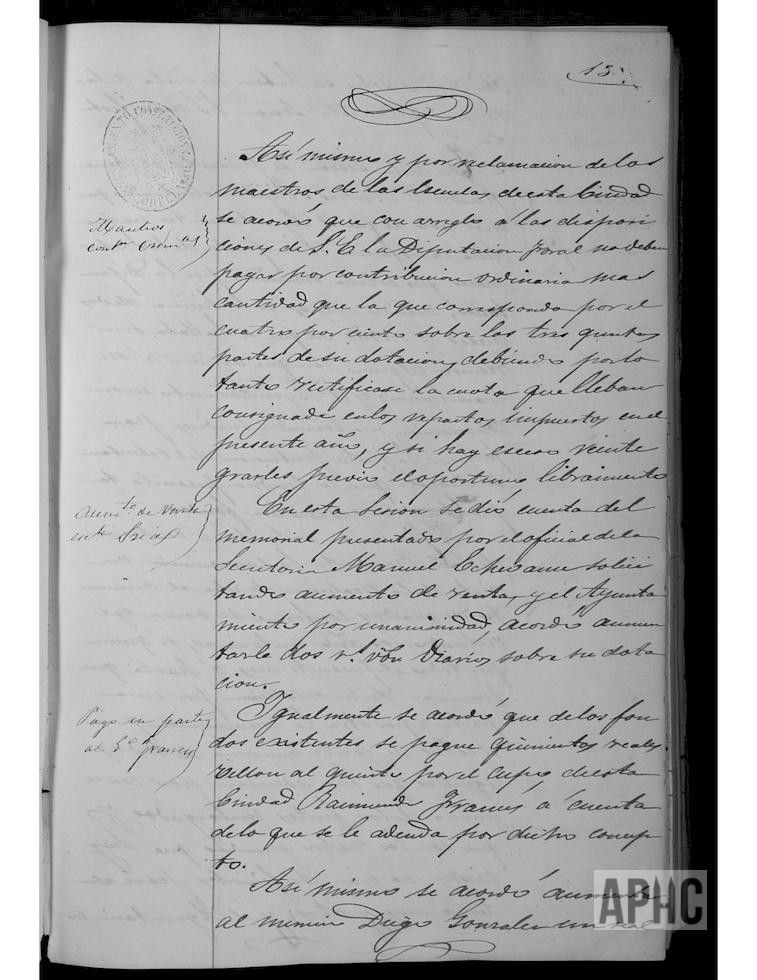 13.
Asi mismo y por reclamacion de los
maestros de las Escuelas de esta Ciudad
se acordó que con arreglo á las disposi
ciones de S. E. la Diputacion foral no deben
pagar por contribucion ordinaria mas
cantidad que la que corresponda por el
cuatro por ciento sobre las tres quintas
partes de su dotacion, debiendo por lo
tanto rectificarse la cuota que lleban
consignada en los repartos impuestos en el
presente año, y si hay esceso reinte
grarles previo el oportuno libramiento
Maestros
En esta sesion se dió cuenta del
memorial presentado por el oficial de la
Secretaria Manuel solici
tando aumento de renta, y el Ayunta
miento por unanimidad, acordó aumen
tarle dos r.s von diarios sobre su dota
cion.
Aum.to de
Igualmente se acordó que de los fon
dos existentes se pague quinientos reales
vellon al quinto por el cupo, de esta
Ciudad Raimundo Francés á cuenta
de lo que se le adeuda por dicho concep
to.
Pago en parte
al 5.to Frances
Asi mismo se acordó aumentar
al Diego Gonzalez un real
APHC